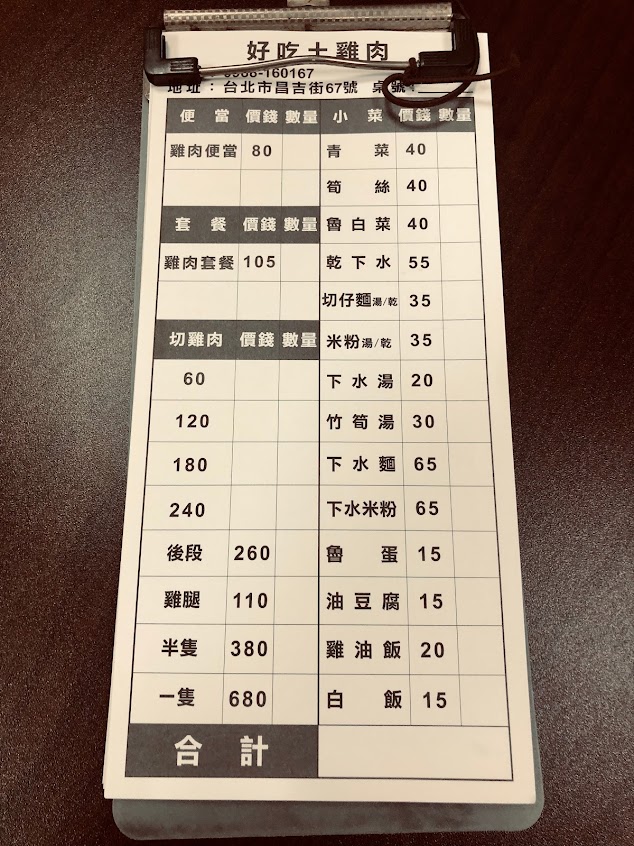 好吃土雞肉
0988-160167
地址：台北市昌吉街67號 桌號：
便當 價錢 數量 小菜 價錢 數量
雞肉便當 80 青菜 40
筍絲 40
套餐 價錢 數量 魯白菜 40
雞肉套餐 105 乾下水 55
切仔麵湯/乾 35
切雞肉 價錢 數量 米粉湯/乾 35
60 下水湯 20
120 竹筍湯 30
180 下水麵 65
240 下水米粉 65
後段 260 魯蛋 15
雞腿 110 油豆腐 15
半隻 380 雞油飯 20
一隻 680 白飯 15
合計